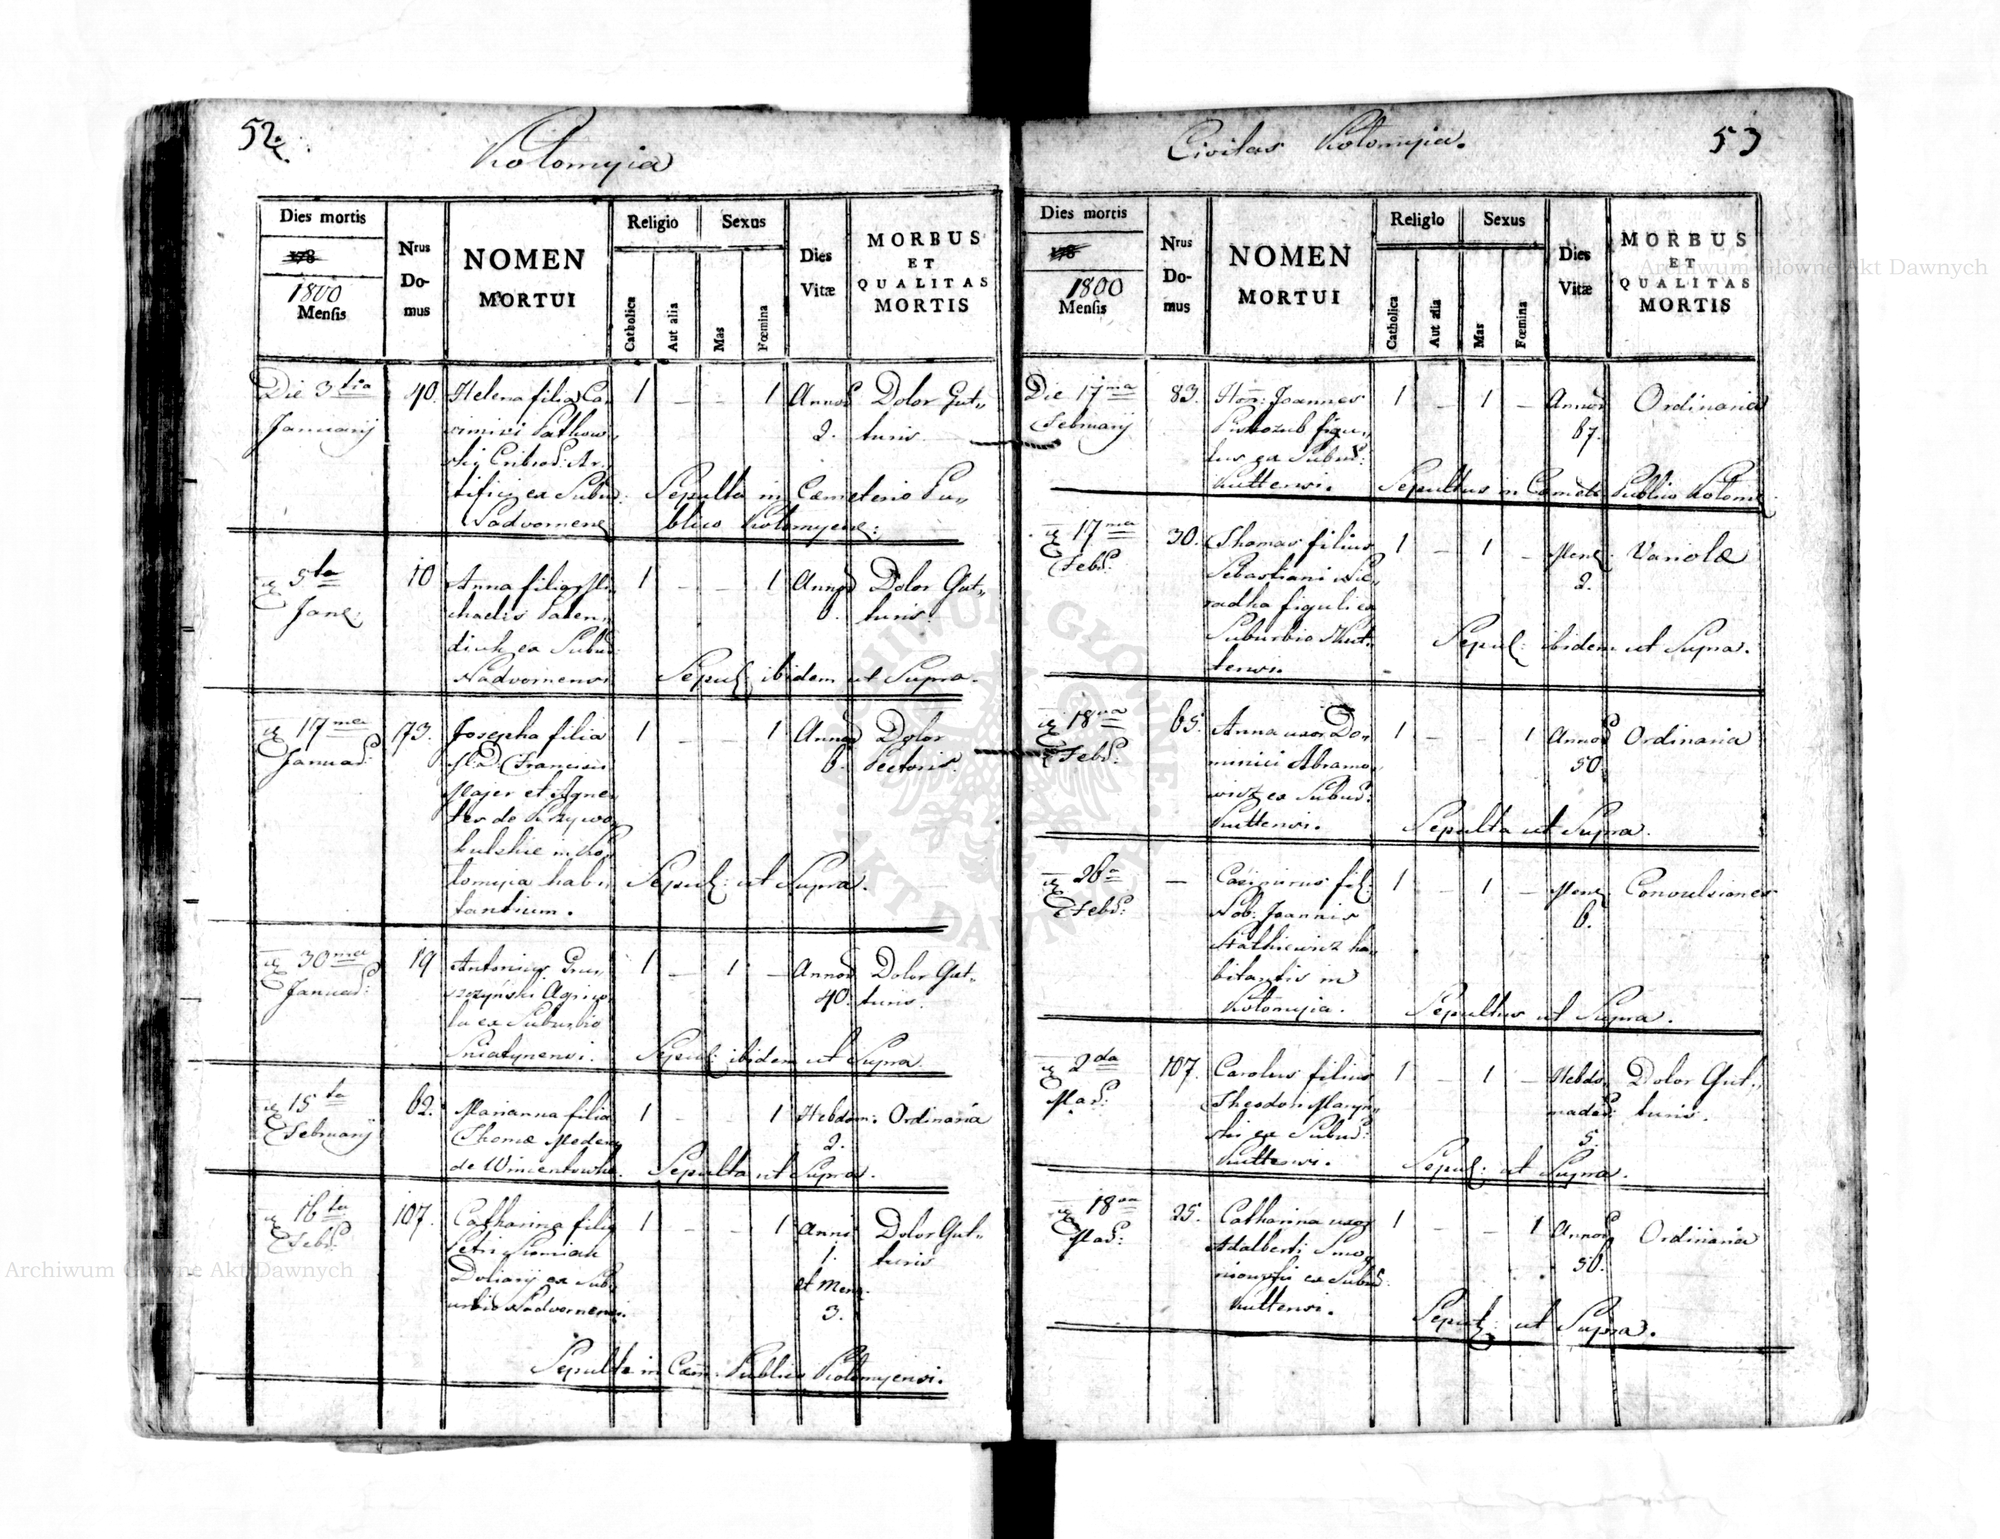 52.
Kołomyia
Dies mortis
178
1800
Mensis
Nrus
Do-
mus
NOMEN
MORTUI
Religio
Catholica
Aut alia
Sexus
Mas
Fœmina
Dies
Vitæ
MORBUS
ET
QUALITAS
MORTIS
Die 3tia
Januarij
40.
Helena filia Ca-
simiri
ex Subur:
1 - - 1
Annor
2.
Dolor Gut-
turis
Sepulta in Cœmeterio Pu-
blico Kolomyens:
5ta
Jan:
10
Anna filia Mi-
chaelis
ex Subur:
Nadvornensi
1 - - 1
Annor
6.
Dolor Gut-
turis.
Sepul: ibidem ut Supra.
17ma
Januar:
73.
Josepha filia
Francisci
Majer et Agne-
tis de Przywo-
kulskie in Ko-
lomyia habi-
tantium.
1 - - 1
Annor
6.
Dolor
Pectoris.
Sepul: ut Supra.
30ma
Januar:
19
Antonius
Agrico-
la ex Suburbio
Sniatynensi.
1 - 1 -
Annor
40.
Dolor Gut-
turis.
Sepul: ibidem ut Supra.
15ta
Februarij
62.
Marianna filia
Thomæ
de Wincentowka.
1 - - 1
Hebdom:
2.
Ordinaria
Sepulta ut Supra.
16ta
Febr:
107.
Catharina filia
Petri
Doliarij ex Sub-
urbio Nadvornensi.
1 - - 1
Anni
1.
et Mens.
3.
Dolor Gut-
turis
Sepulta in Cœm: Publico Kolomyensi.
53
Civitas Kołomyia.
Dies mortis
178
1800
Mensis
Nrus
Do-
mus
NOMEN
MORTUI
Religio
Catholica
Aut alia
Sexus
Mas
Fœmina
Dies
Vitæ
MORBUS
ET
QUALITAS
MORTIS
Die 17ma
Februarij
83.
Hon: Joannes
figu-
lus ex Subur:
Kuttensi.
1 - 1 -
Annor
67.
Ordinaria
Sepultus in Cœmet: Publico Kolom:
17ma
Febr:
30.
Thomas filius
Sebastiani
figuli ex
Suburbio Kut-
tensi.
1 - 1 -
Mens:
2.
Variolæ
Sepul: ibidem ut Supra.
18va
Febr:
65.
Anna uxor Do-
minici Abramo-
wicz ex Subur:
Kuttensi.
1 - - 1
Annor
50
Ordinaria
Sepulta ut Supra.
26a
Febr:
-
Casimirus fil:
Nob: Joannis
ha-
bitantis in
Kołomyia.
1 - 1 -
Mens
6.
Convulsiones
Sepultus ut Supra.
2da
Mar:
107.
Carolus filius
Theodori
ex Subur:
Kuttensi.
1 - 1 -
Hebdo-
madar:
5.
Dolor Gut-
turis.
Sepul: ut Supra.
18va
Mar:
25.
Catharina uxor
Adalberti
ex Subur:
Kuttensi.
1 - - 1
Annor
50.
Ordinaria
Sepul: ut Supra.
Archiwum Główne Akt Dawnych
Archiwum Główne Akt Dawnych
ARCHIWUM GŁÓWNE
AKT DAWNYCH